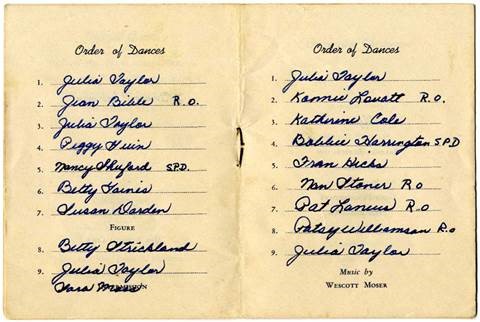 Order of Dances
1. Julia Taylor
2. Jean Bible R.O.
3. Julia Taylor
4. Peggy
5. Nancy Shuford S.P.D.
6. Betty
7. Susan Darden
FIGURE
8. Betty Strickland
9. Julia Taylor
Sara
Order of Dances
1. Julia Taylor
2. R.O.
3. Katherine Cole
4. Bobbie Harrington SPD
5. Fran Hicks
6. Nan Stoner R.O
7. Pat Lanius R.O
8. Patsy Williamson R.O
9. Julia Taylor
Music by
WESCOTT MOSER